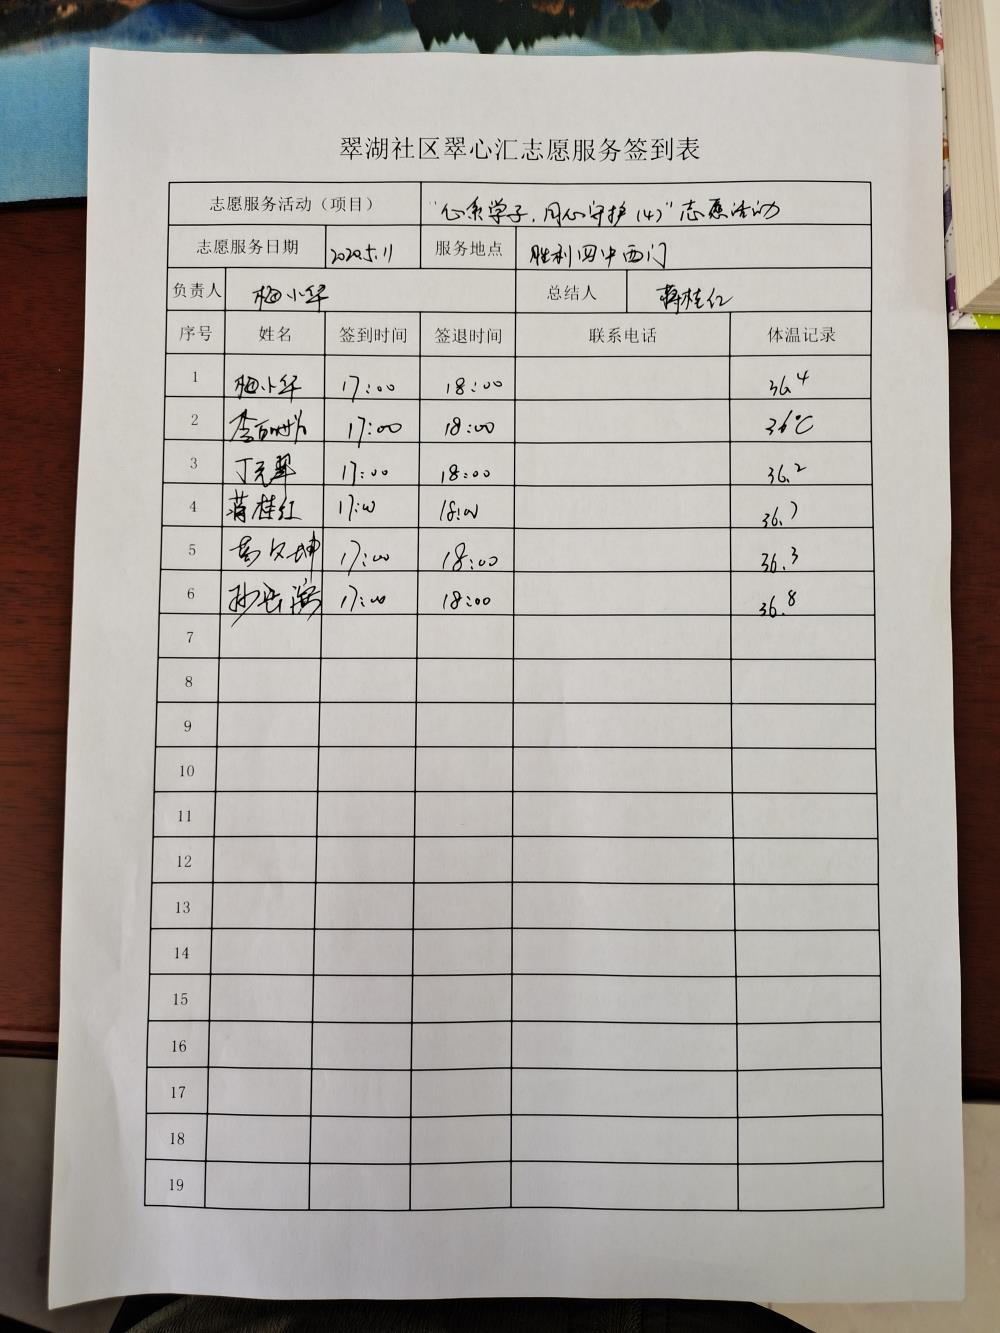 翠湖社区翠心汇志愿服务签到表
志愿服务活动（项目） "心系学子，同心守护（4）"志愿活动
志愿服务日期 2020.5.11 服务地点 胜利四中西门
负责人 梅小华 总结人 蒋桂红
序号 姓名 签到时间 签退时间 联系电话 体温记录
1 梅小华 17:00 18:00 36.4
2 李 17:00 18:00 36℃
3 丁元翠 17:00 18:00 36.2
4 蒋桂红 17:00 18:00 36.7
5 17:00 18:00 36.3
6 17:00 18:00 36.8
7
8
9
10
11
12
13
14
15
16
17
18
19